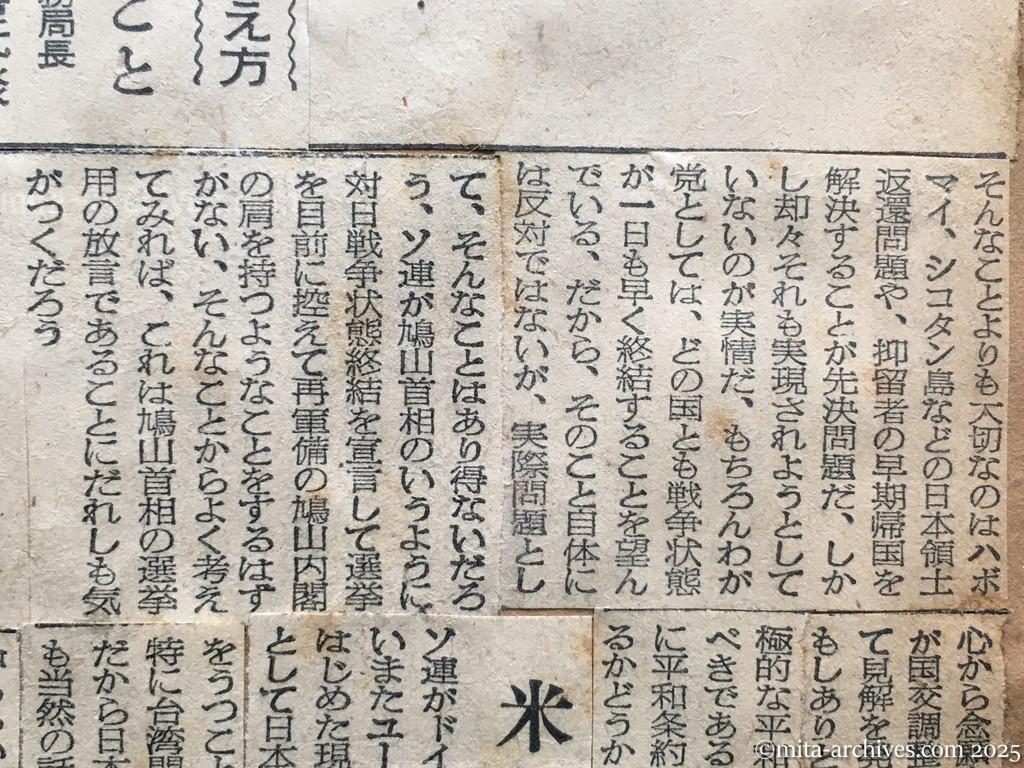 え方
こと
務局長
そんなことよりも大切なのはハボ
マイ、シコタン島などの日本領土
返還問題や、抑留者の早期帰国を
解決することが先決問題だ、しか
し却々それも実現されようとして
いないのが実情だ、もちろんわが
党としては、どの国とも戦争状態
が一日も早く終結することを望ん
でいる、だから、そのこと自体に
は反対ではないが、実際問題とし
て、そんなことはあり得ないだろ
う、ソ連が鳩山首相のいうように
対日戦争状態終結を宣言して選挙
を目前に控えて再軍備の鳩山内閣
の肩を持つようなことをするはず
がない、そんなことからよく考え
てみれば、これは鳩山首相の選挙
用の放言であることにだれしも気
がつくだろう
心から念願
が国交調整
て見解を
もしありと
極的な平和
べきである
に平和条約
るかどうか
米
ソ連がドイ
いまたユー
はじめた現
として日本
をうつこと
特に台湾問
だから日本
も当然の話
©mita-archives.com 2025